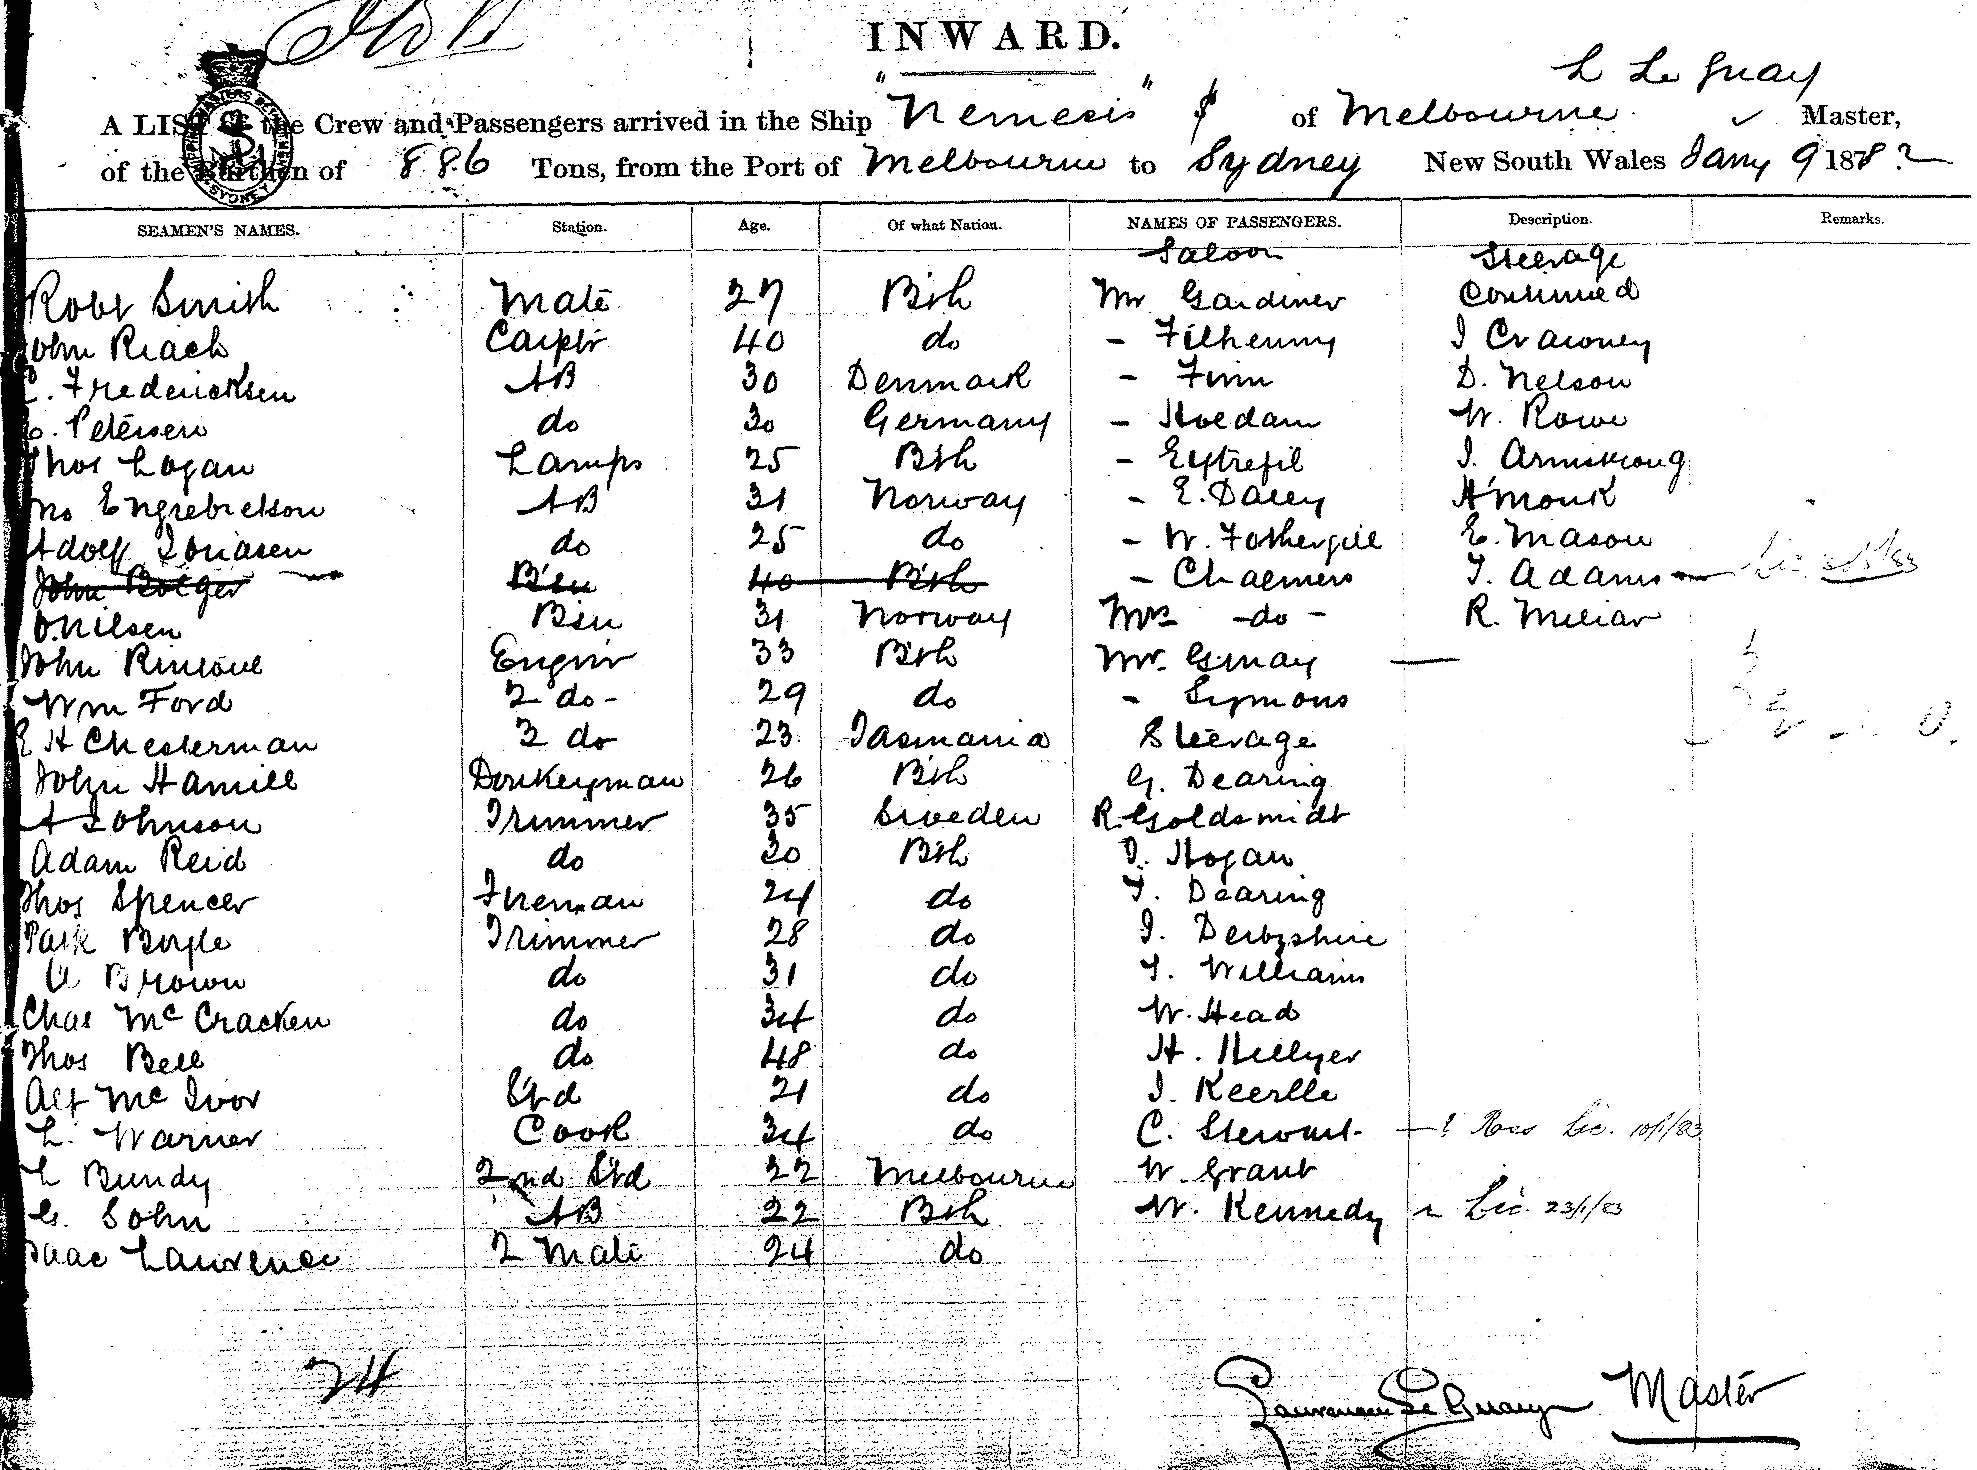 INWARD.
L Le Guay
A LIST of the Crew and Passengers arrived in the Ship "Nemesis" of Melbourne Master,
of the Burthen of 886 Tons, from the Port of Melbourne to Sydney New South Wales Jany 9 187
SEAMEN'S NAMES. Station. Age. Of what Nation. NAMES OF PASSENGERS. Description. Remarks.
Saloon Steerage
Robt Smith Mate 27 Bsh Mr Gardiner Continued
John Riach Carptr 40 do - Filhenny J Crawney
C. Fredericksen AB 30 Denmark - Finn D. Nelson
C. Petersen do 30 Germany - Hoedam W. Rowe
Thos Logan Lamps 25 Bsh - J. Armstrong
Jno Engrebretson AB 31 Norway - E. Dacey H Monk
Adolf Jonasen do 25 do - W. Fothergill E. Mason
John Bolger Bsn 40 Bsh - Chalmers T. Adams
O. Nilsen Bsn 31 Norway Mrs - do - R. Miliar
John Rintoul Enginr 33 Bsh Mr. Gunay
Wm Ford 2 do - 29 do - Symons
E H Chesterman 3 do 23 Tasmania Steerage
John Hamill Donkeyman 26 Bsh G. Dearing
A Johnson Trimmer 35 Sweden R. Goldsmidt
Adam Reid do 30 Bsh J. Hogan
Thos Spencer Fireman 24 do T. Dearing
Patk Boyle Trimmer 28 do J. Derbyshire
A Brown do 31 do T. Williams
Chas McCracken do 34 do W. Head
Thos Bell do 48 do H. Hillyer
Alf McIvor Std 21 do J. Keerlle
L. Warner Cook 34 do C. Stewart - Ross Lic. 10/1/83
L Bundy 2nd Std 22 Melbourne W. Grant
G. Sohn AB 22 Bsh W. Kennedy Lic. 23/1/83
Isaac Lawrence 2 Mate 24 do
24
Laurence Le Guay Master